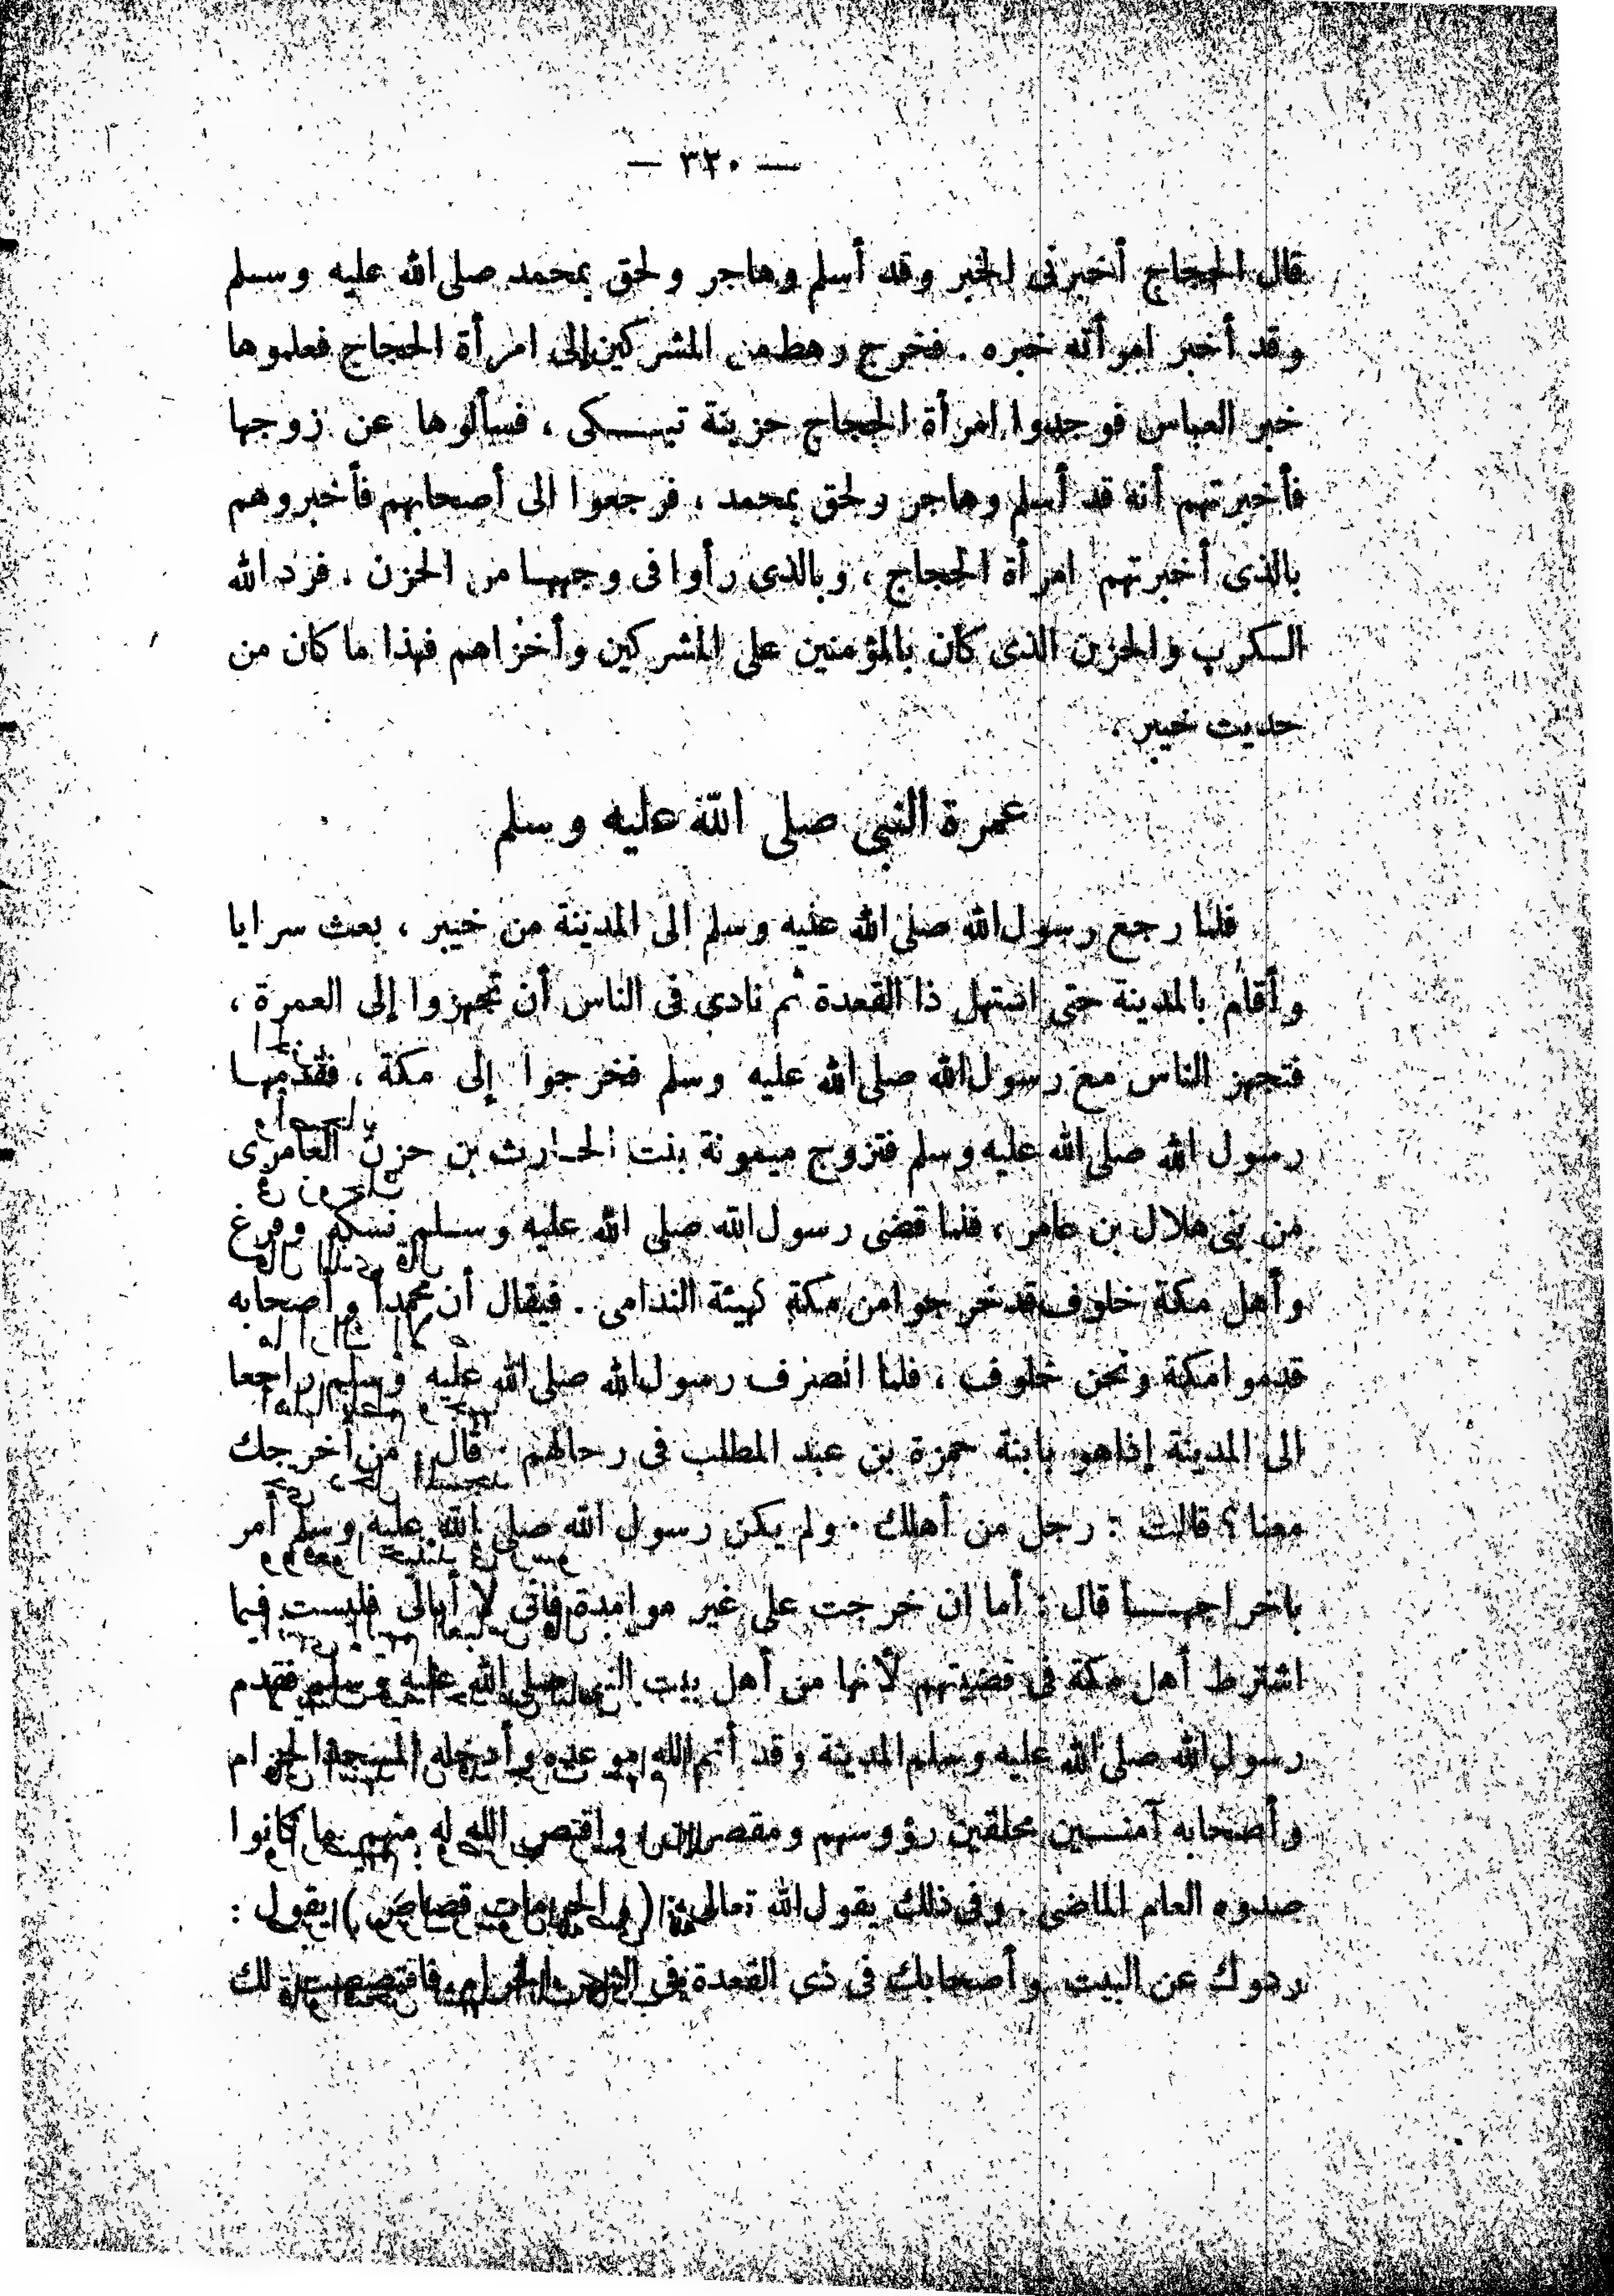 — ٣٣٠ —
قال الحجاج أخبرنى الخبر وقد أسلم وهاجر ولحق بمحمد صلى الله عليه وسلم
وقد أخبر امرأته خبره . فخرج رهط من المشركين إلى امرأة الحجاج فعلموها
خبر العباس فوجدوا امرأة الحجاج حزينة تبكى ، فسألوها عن زوجها
فأخبرتهم أنه قد أسلم وهاجر ولحق بمحمد ، فرجعوا الى أصحابهم فأخبروهم
بالذى أخبرتهم امرأة الحجاج ، وبالذى رأوا فى وجهها من الحزن . فرد الله
الكرب والحزن الذى كان بالمؤمنين على المشركين وأخزاهم فهذا ما كان من
حديث خيبر .
عمرة النبى صلى الله عليه وسلم
فلما رجع رسول الله صلى الله عليه وسلم الى المدينة من خيبر ، بعث سرايا
وأقام بالمدينة حتى استهل ذا القعدة ثم نادى فى الناس أن تجهزوا إلى العمرة ،
فتجهز الناس مع رسول الله صلى الله عليه وسلم فخرجوا إلى مكة ، فقدمها
رسول الله صلى الله عليه وسلم فتزوج ميمونة بنت الحارث بن حزن العامرى
من بنى هلال بن عامر ، فلما قضى رسول الله صلى الله عليه وسلم نسكه وفرغ
وأهل مكة خلوف قد خرجوا من مكة كهيئة الندامى . فيقال أن محمداً وأصحابه
قدموا مكة ونحن خلوف ، فلما انصرف رسول الله صلى الله عليه وسلم راجعا
الى المدينة إذا هو بابنة حمزة بن عبد المطلب فى رحالهم . قال : من أخرجك
معنا ؟ قالت : رجل من أهلك . ولم يكن رسول الله صلى الله عليه وسلم أمر
باخراجها قال : أما ان خرجت على غير فانى لا أبالى فليست فيما
اشترط أهل مكة فى قضيتهم لأنها من أهل بيت النبى صلى الله عليه وسلم فقدم
رسول الله صلى الله عليه وسلم المدينة وقد أتم الله موعده وأدخله المسجد الحرام
وأصحابه آمنين محلقين رؤوسهم ومقصرين ، واقتص الله له منهم ما كانوا
صدوه العام الماضى . وفى ذلك يقول الله تعالى : ( والحرمات قصاص ) يقول :
ردوك عن البيت وأصحابك فى ذى القعدة فى الشهر الحرام فاقتصصت لك